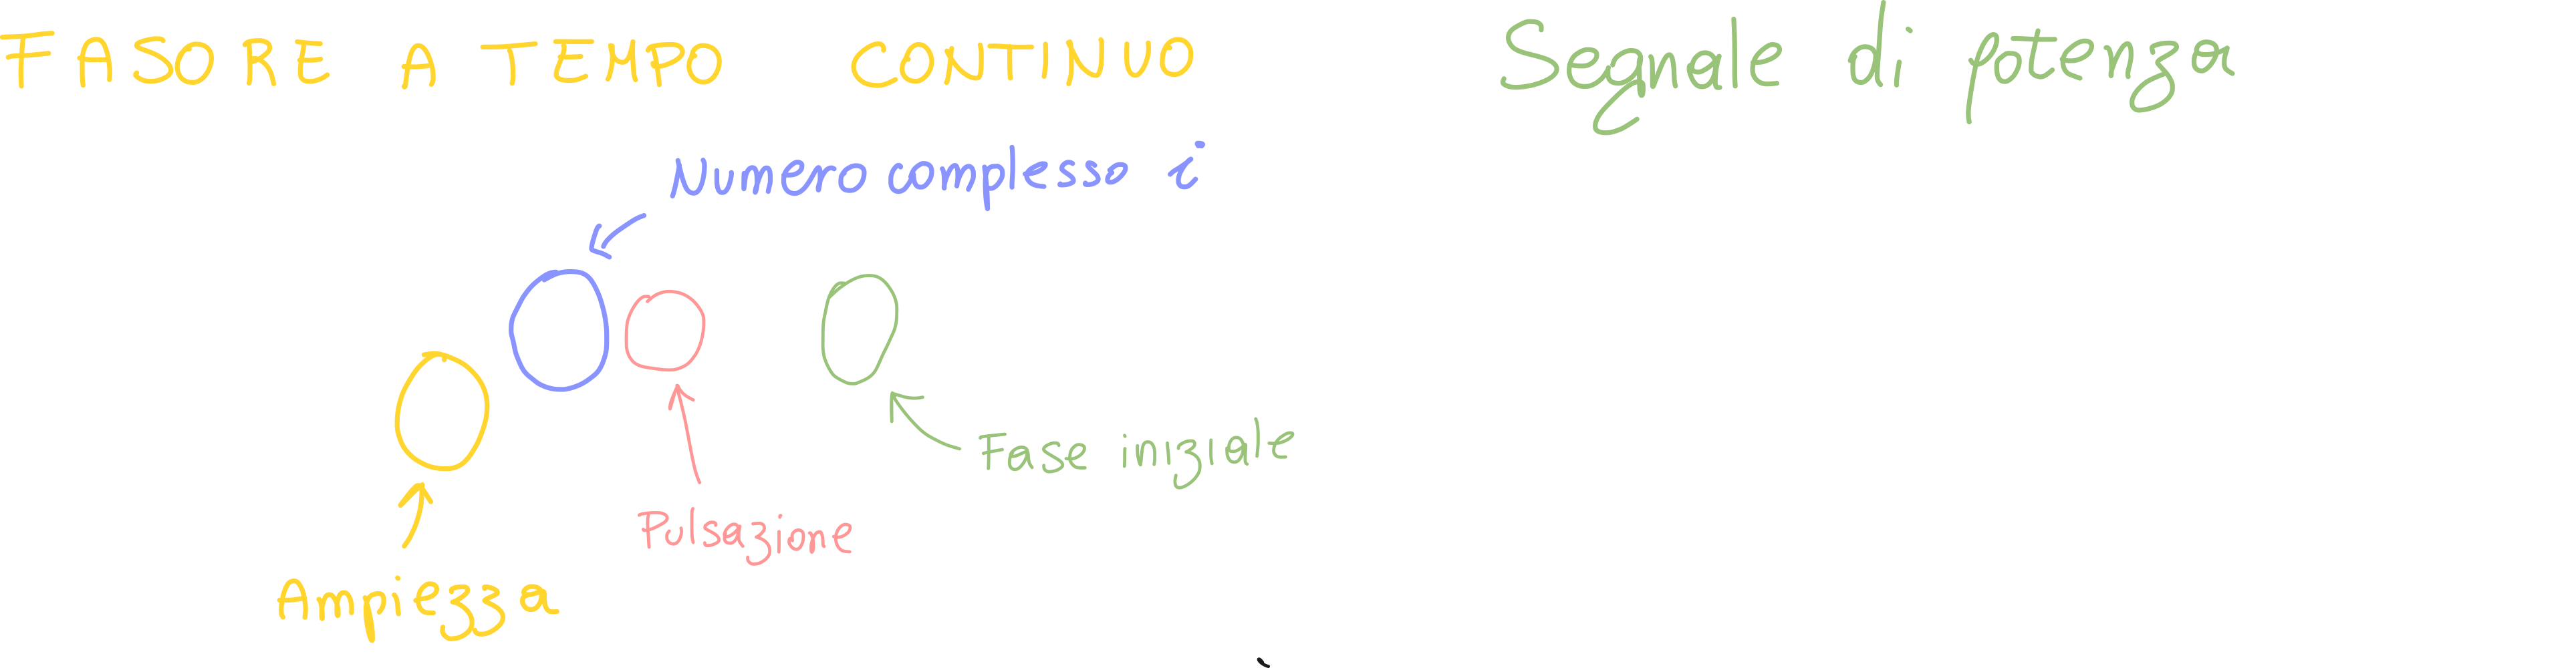 FASORE A TEMPO CONTINUO
Segnale di potenza
Numero complesso i
Fase iniziale
Pulsazione
Ampiezza